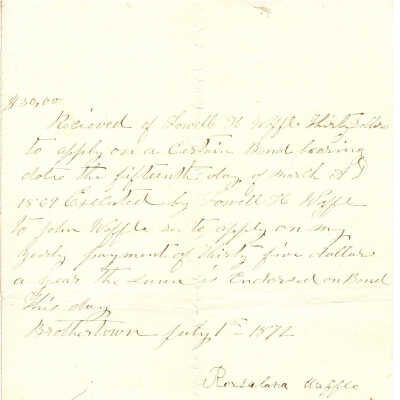 $30,00
Recieved of Lowell H Wiffle Thirty
to apply on a Certain Bond bearing
date the fifteenth day of March AD
1869 Executed by Lowell H Wiffle
to John Wiffle to apply on my
yearly payment of thirty five dollars
a year the same is Endorsed on Bond
This day
Brothertown July 1st 1871